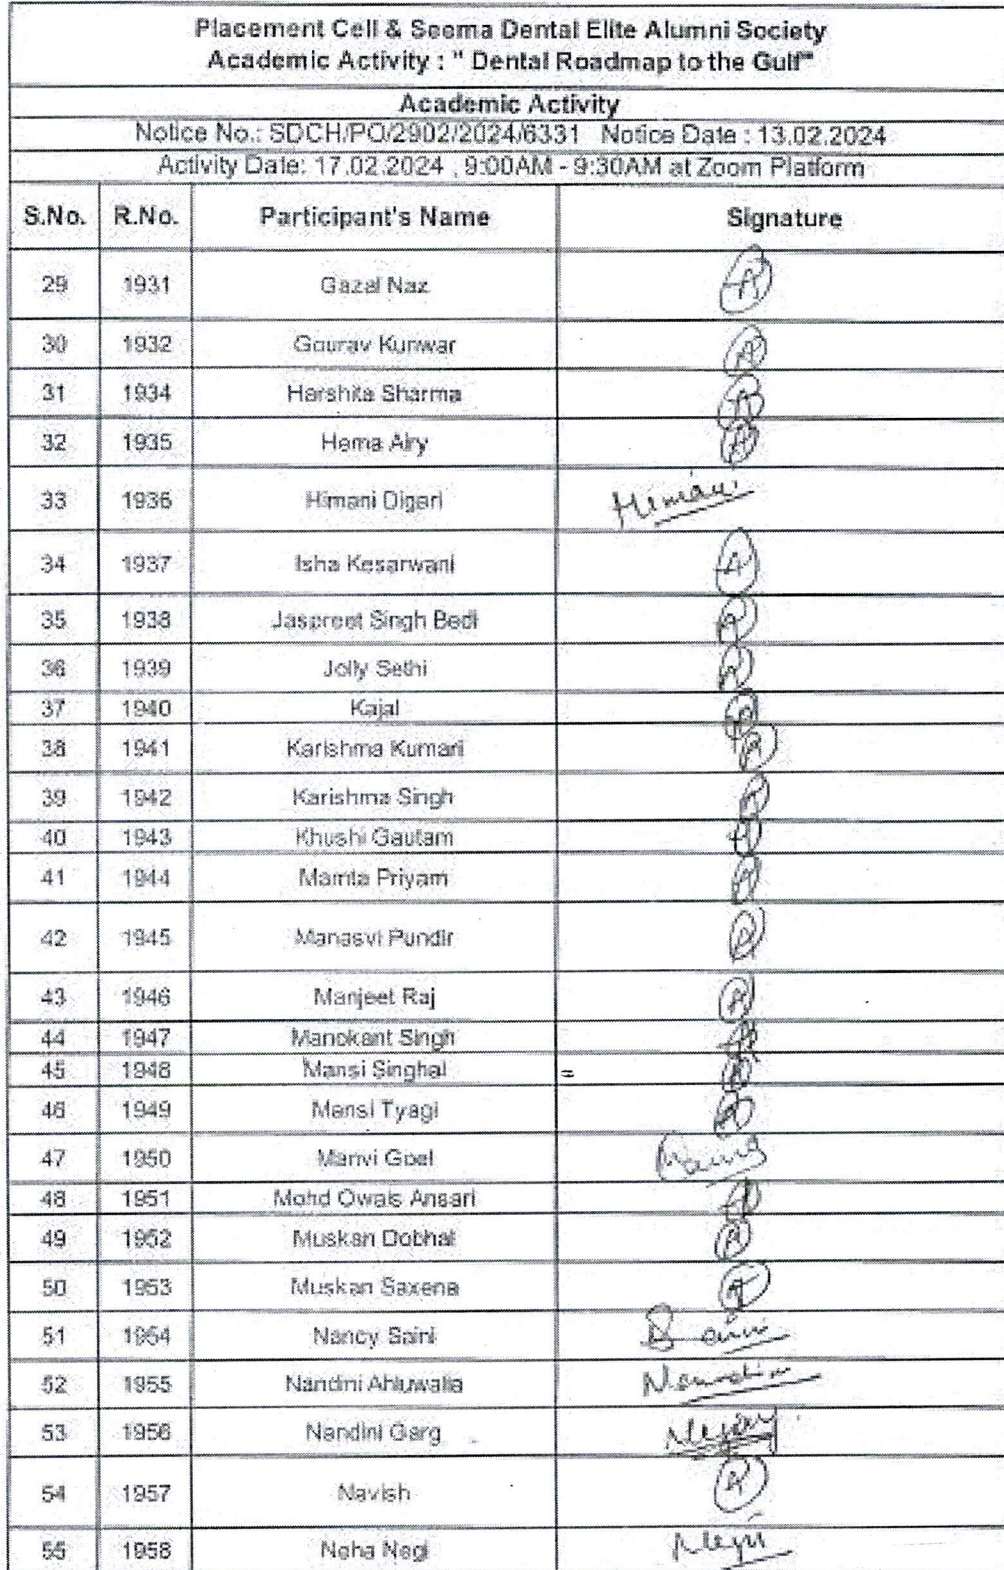 Placement Cell & Seema Dental Elite Alumni Society
Academic Activity : " Dental Roadmap to the Gulf"
Academic Activity
Notice No.: SDCH/PO/2902/2024/6331 Notice Date : 13.02.2024
Activity Date: 17.02.2024 , 9:00AM - 9:30AM at Zoom Platform
S.No. R.No. Participant's Name Signature
29 1931 Gazal Naz A
30 1932 Gourav Kunwar A
31 1934 Harshita Sharma A
32 1935 Hema Airy A
33 1936 Himani Digari Himani
34 1937 Isha Kesarwani A
35 1938 Jaspreet Singh Bedi A
36 1939 Jolly Sethi A
37 1940 Kajal A
38 1941 Karishma Kumari A
39 1942 Karishma Singh A
40 1943 Khushi Gautam A
41 1944 Mamta Priyam A
42 1945 Manasvi Pundir A
43 1946 Manjeet Raj A
44 1947 Manokant Singh A
45 1948 Mansi Singhal = A
46 1949 Mansi Tyagi A
47 1950 Manvi Goel
48 1951 Mohd Owais Ansari A
49 1952 Muskan Dobhal A
50 1953 Muskan Saxena A
51 1954 Nancy Saini Saini
52 1955 Nandini Ahluwalia Nandini
53 1956 Nandini Garg
54 1957 Navish A
55 1958 Neha Negi Negi